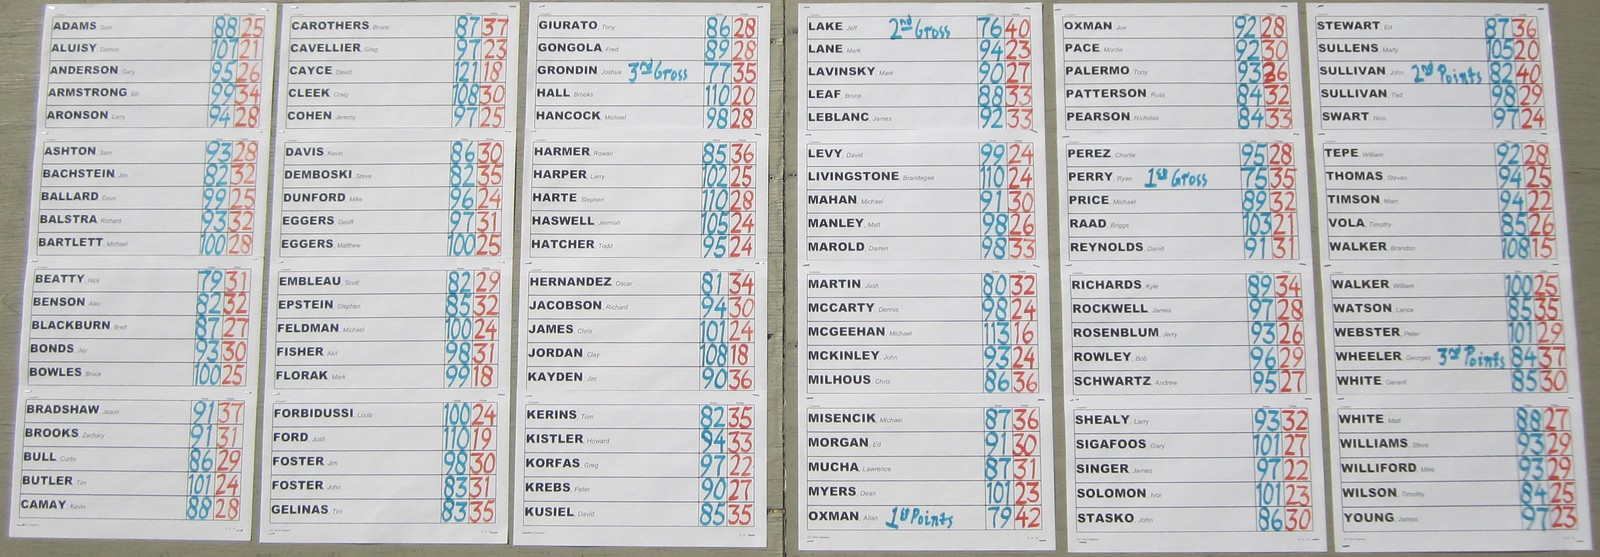 ADAMS, Sam 88 25
ALUISY, Damon 107 21
ANDERSON, Gary 95 26
ARMSTRONG, Bill 99 34
ARONSON, Larry 94 28
ASHTON, Sam 93 28
BACHSTEIN, Jim 82 32
BALLARD, Dave 99 25
BALSTRA, Richard 93 32
BARTLETT, Michael 100 28
BEATTY, Nick 79 31
BENSON, Alec 82 32
BLACKBURN, Brett 87 27
BONDS, Jay 93 30
BOWLES, Bruce 100 25
BRADSHAW, Jason 91 37
BROOKS, Zachary 91 31
BULL, Curtis 86 29
BUTLER, Tim 101 24
CAMAY, Kevin 88 28
CAROTHERS, Bruce 87 37
CAVELLIER, Greg 97 23
CAYCE, David 121 18
CLEEK, Craig 108 30
COHEN, Jeremy 97 25
DAVIS, Kevin 86 30
DEMBOSKI, Steve 82 35
DUNFORD, Mike 96 24
EGGERS, Geoff 97 31
EGGERS, Matthew 100 25
EMBLEAU, Scott 82 29
EPSTEIN, Stephen 85 32
FELDMAN, Michael 100 24
FISHER, Akil 98 31
FLORAK, Mark 99 18
FORBIDUSSI, Louis 100 24
FORD, Josh 110 19
FOSTER, Jim 98 30
FOSTER, John 83 31
GELINAS, Tim 83 35
GIURATO, Tony 86 28
GONGOLA, Fred 89 28
GRONDIN, Joshua 3rd Gross 77 35
HALL, Brooks 110 20
HANCOCK, Michael 98 28
HARMER, Rowan 85 36
HARPER, Larry 102 25
HARTE, Stephen 110 28
HASWELL, Jermiah 105 24
HATCHER, Todd 95 24
HERNANDEZ, Oscar 81 34
JACOBSON, Richard 94 30
JAMES, Chris 101 24
JORDAN, Clay 108 18
KAYDEN, Jim 90 36
KERINS, Tom 82 35
KISTLER, Howard 94 33
KORFAS, Greg 97 22
KREBS, Peter 90 27
KUSIEL, David 85 35
LAKE, Jeff 2nd Gross 76 40
LANE, Mark 94 23
LAVINSKY, Mark 90 27
LEAF, Bruce 88 33
LEBLANC, James 92 33
LEVY, David 99 24
LIVINGSTONE, Brandegee 110 24
MAHAN, Michael 91 30
MANLEY, Matt 98 26
MAROLD, Darren 98 33
MARTIN, Josh 80 32
MCCARTY, Dennis 98 24
MCGEEHAN, Michael 113 16
MCKINLEY, John 93 24
MILHOUS, Chris 86 36
MISENCIK, Michael 87 36
MORGAN, Ed 91 30
MUCHA, Lawrence 87 31
MYERS, Dean 101 23
OXMAN, Allan 1st Points 79 42
OXMAN, Joe 92 28
PACE, Montie 92 30
PALERMO, Tony 93 26
PATTERSON, Russ 84 32
PEARSON, Nicholas 84 33
PEREZ, Charlie 95 28
PERRY, Ryan 1st Gross 75 35
PRICE, Michael 89 32
RAAD, Briggs 103 21
REYNOLDS, David 91 31
RICHARDS, Kyle 89 34
ROCKWELL, James 97 28
ROSENBLUM, Jerry 93 26
ROWLEY, Bob 96 29
SCHWARTZ, Andrew 95 27
SHEALY, Larry 93 32
SIGAFOOS, Gary 101 27
SINGER, James 97 22
SOLOMON, Ivor 101 23
STASKO, John 86 30
STEWART, Ed 87 36
SULLENS, Marty 105 20
SULLIVAN, John 2nd Points 82 40
SULLIVAN, Ted 98 29
SWART, Nico 97 24
TEPE, William 92 28
THOMAS, Steven 94 25
TIMSON, 94 22
VOLA, Timothy 85 26
WALKER, Brandon 108 15
WALKER, William 100 25
WATSON, Lance 85 35
WEBSTER, Peter 101 29
WHEELER, Georges 3rd Points 84 37
WHITE, Gerard 85 30
WHITE, Matt 88 27
WILLIAMS, Steve 93 29
WILLIFORD, Mike 93 29
WILSON, Timothy 84 25
YOUNG, James 97 23